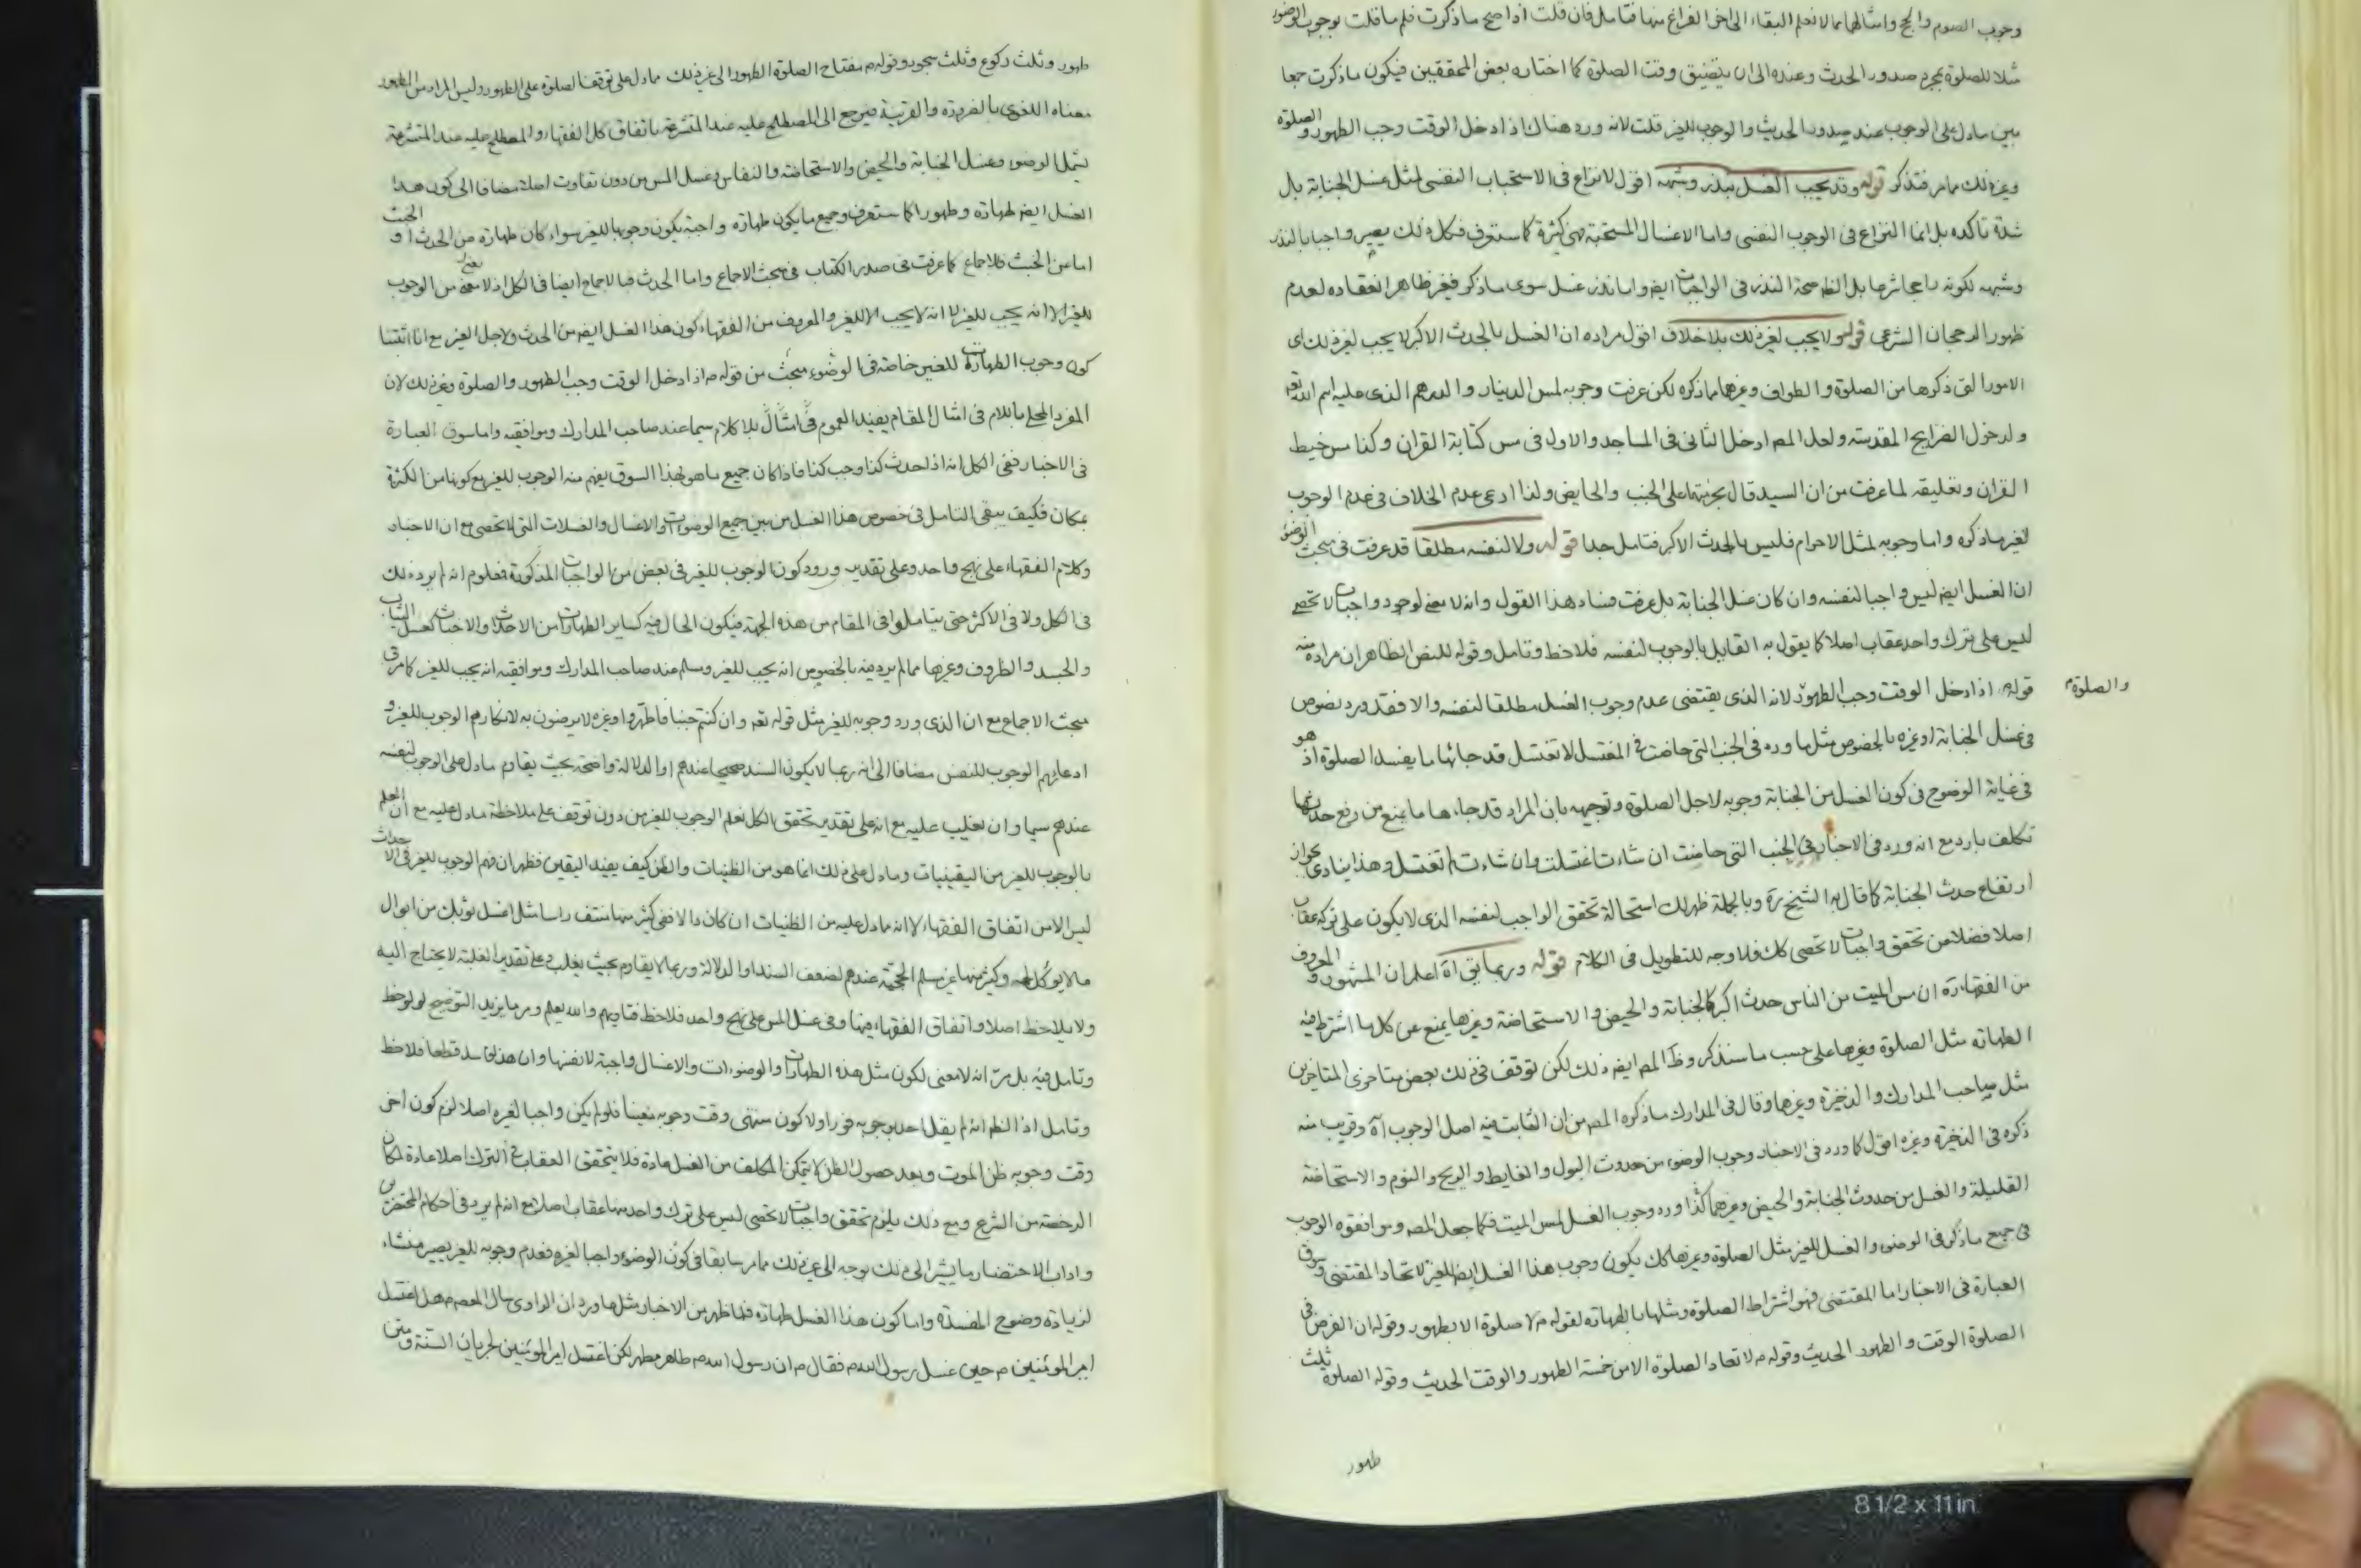 وجوب الصوم والحج وامثالهما مما لا نعلم البقاء الى اخر الفراغ منها فتامل فان قلت اذا صح ما ذكرت فلم ما قلت بوجوب الوضوء
مثلا للصلوة بمجرد صدور الحدث وعنده الى ان يتضيق وقت الصلوة كما اختاره بعض المحققين فيكون ما ذكرت جمعا
بين ما دل على الوجوب عند صدور الحدث والوجوب للغير قلت لانه ورد هناك اذا دخل الوقت وجب الطهور والصلوة
وغير ذلك مما مر فتذكر قوله وقد يجب الغسل بنذر وشبهه اقول لا نزاع في الاستحباب النفسي لمثل غسل الجنابة بل
شدة تاكده بل انما النزاع في الوجوب النفسي واما الاغسال المستحبة فهي كثيرة كما ستعرف فكل ذلك يصير واجبا بالنذر
وشبهه لكونه راجحا شرعا بل الظ صحة النذر في الواجبات ايض واما نذر غسل سوى ما ذكر فغير ظاهر انعقاده لعدم
ظهور الرجحان الشرعي قوله ولا يجب لغير ذلك بلا خلاف اقول مراده ان الغسل بالحدث الاكبر لا يجب لغير ذلك اى
الامور التي ذكرها من الصلوة والطواف وغيرهما مما ذكره لكن عرفت وجوبه لمس الدينار والدرهم الذي عليه اسم الله تع
ولدخول الضرايح المقدسة ولعل المص ادخل الثاني في المساجد والاول في مس كتابة القران وكذا مس خيط
القران وتعليقه لما عرفت من ان السيد قال بحرمتهما على الجنب والحايض ولذا ادعى عدم الخلاف في عدم الوجوب
لغير ما ذكره واما وجوبه لمثل الاحرام فليس بالحدث الاكبر فتامل جدا قوله ولا لنفسه مطلقا قد عرفت في مبحث الوضوء
ان الغسل ايض ليس واجبا لنفسه وان كان غسل الجنابة بل عرفت فساد هذا القول وانه لا معنى لوجود واجبات لا تحصى
ليس على ترك واحد عقاب اصلا كما يقول به القايل بالوجوب لنفسه فلاحظ وتامل وقوله للنص الظاهر ان مراده منه
قوله م اذا دخل الوقت وجب الطهور لانه الذي يقتضي عدم وجوب الغسل مطلقا لنفسه والا فقد ورد نصوص
والصلوة م
في غسل الجنابة او غيره بالخصوص مثل ما ورد في الجنب التي حاضت في المغتسل لا تغتسل قد جائها ما يفسد الصلوة اذ هو
في غاية الوضوح في كون الغسل من الجنابة وجوبه لاجل الصلوة وتوجيهه بان المراد قد جاءها ما يمنع من رفع حدثها
تكلف بارد مع انه ورد في الاخبار في الجنب التي حاضت ان شاءت اغتسلت وان شاءت لم تغتسل وهذا ينادي بجواز
ارتفاع حدث الجنابة كما قال به الشيخ ره وبالجملة ظهر لك استحالة تحقق الواجب لنفسه الذي لا يكون على تركه عقاب
اصلا فضلا من تحقق واجبات لا تحصى كك فلا وجه للتطويل في الكلام قوله وربما بقي اه اعلم ان المشهور والمعروف
من الفقهاء ره ان مس الميت من الناس حدث اكبر كالجنابة والحيض والاستحاضة وغيرها يمنع عن كل ما اشترط فيه
الطهارة مثل الصلوة وغيرها على حسب ما سنذكر وظ المص ايض ذلك لكن توقف في ذلك بعض متاخري المتاخرين
مثل صاحب المدارك والذخيرة وغيرهما وقال في المدارك ما ذكره المص من ان الثابت فيه اصل الوجوب اه وقريب منه
ذكره في الذخيرة وغيره اقول كما ورد في الاخبار وجوب الوضوء من حدوث البول والغايط والريح والنوم والاستحاضة
القليلة والغسل من حدوث الجنابة والحيض وغيرهما كذا ورد وجوب الغسل لمس الميت فكما جعل المص وموافقوه الوجوب
في جميع ما ذكر في الوضوء والغسل للغير مثل الصلوة وغيرها كك يكون وجوب هذا الغسل ايض للغير لاتحاد المقتضي وسوق
العبارة في الاخبار اما المقتضي فهو اشتراط الصلوة ومثلها بالطهارة لقوله م لا صلوة الا بطهور وقوله ان الفرض في
الصلوة الوقت والطهور الحديث وقوله م لا تعاد الصلوة الا من خمسة الطهور والوقت الحديث وقوله الصلوة ثلث
طهور
طهور وثلث ركوع وثلث سجود وقوله م مفتاح الصلوة الطهور الى غير ذلك مما دل على توقف الصلوة على الطهور وليس المراد من الطهور
معناه اللغوي بالضرورة والقرينة فيرجع الى المصطلح عليه عند المتشرعة باتفاق كل الفقهاء والمصطلح عليه عند المتشرعة
يشمل الوضوء وغسل الجنابة والحيض والاستحاضة والنفاس وغسل المس من دون تفاوت اصلا مضافا الى كون هذا
الغسل ايض طهارة وطهورا كما ستعرف وجميع ما يكون طهارة واجبة يكون وجوبها للغير سواء كان طهارة من الحدث او الخبث
اما من الخبث فللاجماع كما عرفت في صدر الكتاب في مبحث الاجماع واما الحدث فبالاجماع ايضا في الكل اذ لا معنى من الوجوب
للغير الا انه يجب للغير لا انه لا يجب الا للغير والمعروف من الفقهاء كون هذا الغسل ايض من الحدث ولاجل الغير مع انا اثبتنا
كون وجوب الطهارات للغير خاصة في الوضوء مبحث من قوله م اذا دخل الوقت وجب الطهور والصلوة وغير ذلك لان
المفرد المحلى باللام في امثال المقام يفيد العموم بلا كلام سيما عند صاحب المدارك وموافقيه واما سوق العبارة
في الاخبار ففي الكل انه اذا حدث كذا وجب كذا فاذا كان جميع ما هو بهذا السوق يفهم منه الوجوب للغير مع كونها من الكثرة
بمكان فكيف يبقى التامل في خصوص هذا الغسل من بين جميع الوضوءات والاغسال والغسلات التي لا تحصى مع ان الاخبار
وكلام الفقهاء على نهج واحد وعلى تقدير ورود كون الوجوب للغير في بعض من الواجبات المذكورة فمعلوم انه لم يرد ذلك
في الكل ولا في الاكثر حتى يتاملوا في المقام من هذه الجهة فيكون الحال فيه كساير الطهارات من الاحداث والاخباث كغسل الثياب
والجسد والظروف وغيرها مما لم يرد فيه بالخصوص انه يجب للغير وسلم عند صاحب المدارك وموافقيه انه يجب للغير كما مر في
مبحث الاجماع مع ان الذي ورد وجوبه للغير مثل قوله تع وان كنتم جنبا فاطهروا وغيره لا يرضون به لانكارهم الوجوب للغير و
ادعائهم الوجوب للنفس مضافا الى انه ربما لا يكون السند صحيحا عندهم او الدلالة واضحة بحيث يقاوم ما دل على الوجوب لنفسه
عندهم سيما وان يغلب عليه مع انه على تقدير تحقق الكل نعلم الوجوب للغير من دون توقف على ملاحظة ما دل عليه مع ان العلم
بالوجوب للغير من اليقينيات وما دل على ذلك انما هو من الظنيات والظن كيف يفيد اليقين فظهر ان فهم الوجوب للغير في الاحداث
ليس الا من اتفاق الفقهاء لا انه ما دل عليه من الظنيات ان كان والا ففي كثير منها منتف راسا مثل اغسل ثوبك من ابوال
ما لا يوكل لحمه وكثير منها غير مسلم الحجية عندهم لضعف السند او الدلالة وربما لا يقاوم بحيث يغلب وعلى تقدير الغلبة لا يحتاج اليه
ولا يلاحظ اصلا واتفاق الفقهاء فيها وفي غسل المس على نهج واحد فلاحظ فتاويهم والله يعلم ومر ما يزيد التوضيح لو لوحظ
وتامل فيه بل مر انه لا معنى لكون مثل هذه الطهارات والوضوءات والاغسال واجبة لانفسها وان هذا فاسد قطعا فلاحظ
وتامل اذ الظ انه لم يقل احد بوجوبه فورا ولا كون منتهى وقت وجوبه معينا فلو لم يكن واجبا لغيره اصلا لزم كون اخر
وقت وجوبه ظن الموت وبعد حصول الظن لا يتمكن المكلف من الغسل عادة فلا يتحقق العقاب في الترك اصلا عادة لمكان
الرخصة من الشرع ومع ذلك يلزم تحقق واجبات لا تحصى ليس على ترك واحد منها عقاب اصلا مع انه لم يرد في احكام المحتضرين
واداب الاحتضار ما يشير الى ذلك بوجه الى غير ذلك مما مر سابقا في كون الوضوء واجبا لغيره فعدم وجوبه للغير يصير منشاء
لزيادة وضوح المفسدة واما كون هذا الغسل طهارة فلما ظهر من الاخبار مثل ما ورد ان الراوي سال المعصوم م هل اغتسل
امير المومنين م حين غسل رسول الله م فقال م ان رسول الله م طاهر مطهر لكن اغتسل امير المومنين لجريان السنة ومتى